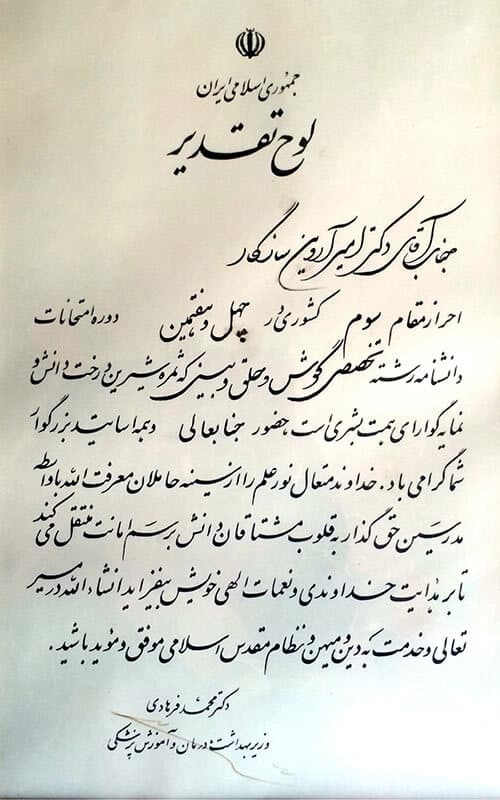 جمهوری اسلامی ایران
لوح تقدیر
جناب آقای دکتر امیر آروین سازگار
احراز مقام سوم کشوری در چهل و هفتمین دوره امتحانات
دانشنامه رشته تخصصی گوش و حلق و بینی که ثمره شیرین درخت دانش و
نمایه گوارای همت بشری است حضور جنابعالی و همه اساتید بزرگوار
شما گرامی باد. خداوند متعال نور علم را از سینه حاملان معرفت الله با واسطه
مدرسین حق گذار به قلوب مشتاقان دانش برسم امانت منتقل می کند
تا بر هدایت خداوندی و نعمات الهی خویش بیفزاید انشاء الله در مسیر
تعالی و خدمت به دین و میهن و نظام مقدس اسلامی موفق و موید باشید.
دکتر محمد فرهادی
وزیر بهداشت، درمان و آموزش پزشکی